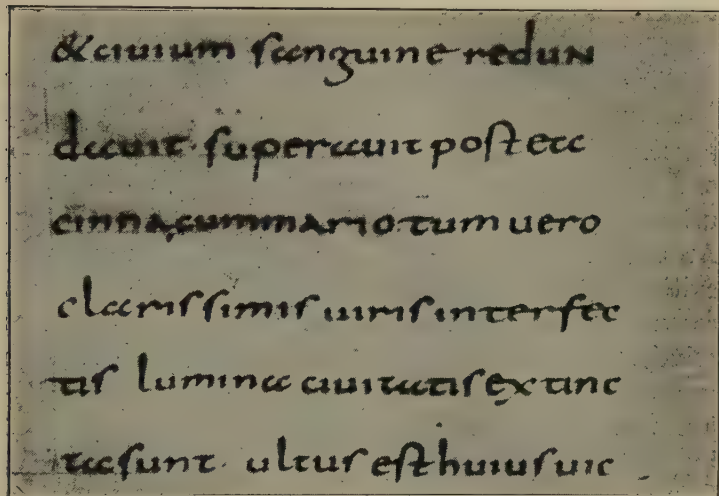 & ciuium sanguine redun
dauit · superauit postea
cinna cum mario · tum uero
clarissimis uiris interfec
tis lumina ciuitatis extinc
ta sunt · ultus est huius uic